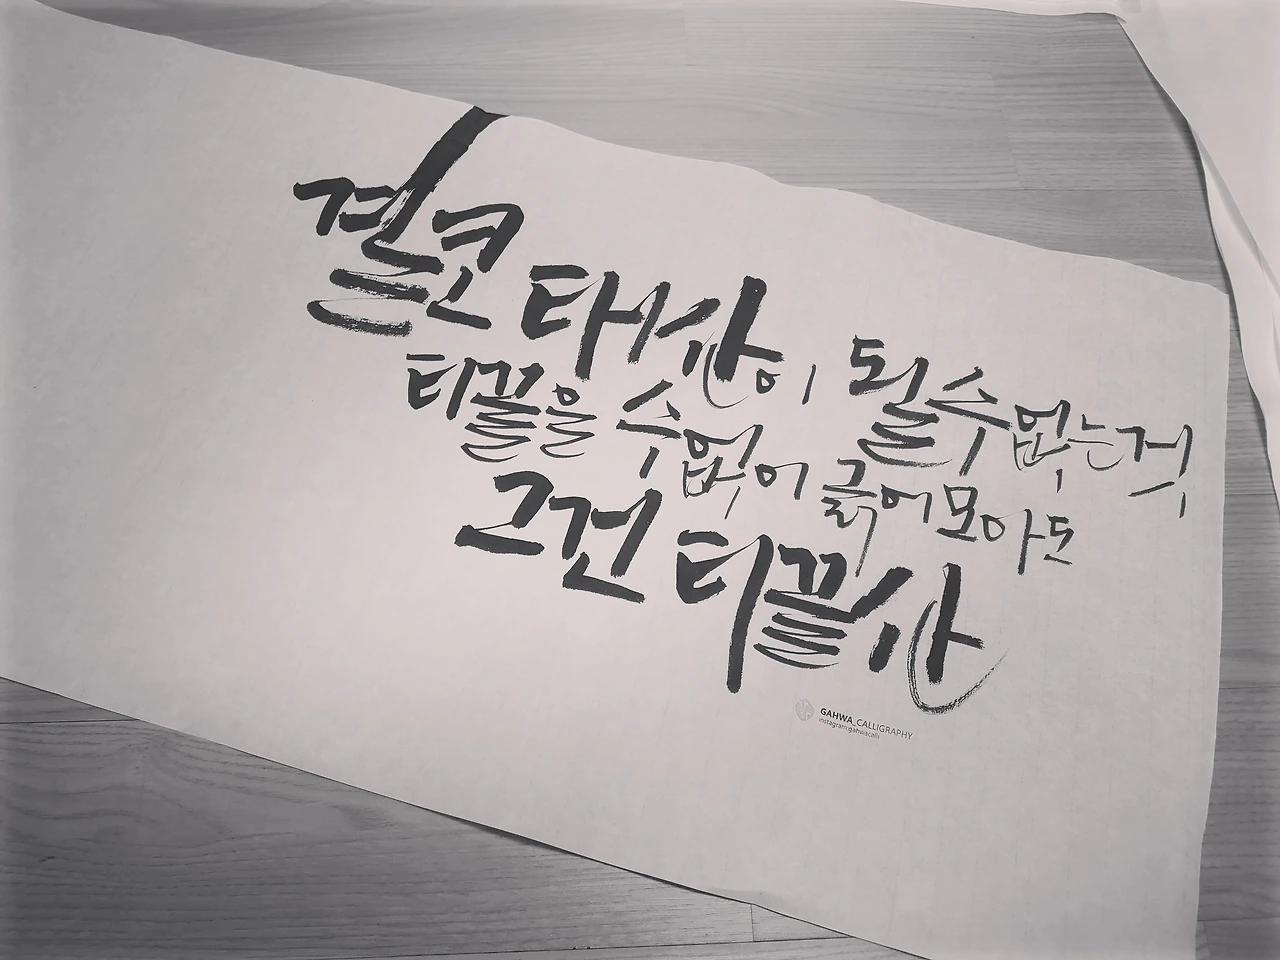 결코 태산이 될 수 없는 걱
티끌을 수없이 긁어모아도
그건 티끌산
GAHWA_CALLIGRAPHY
instagram:gahwacalli